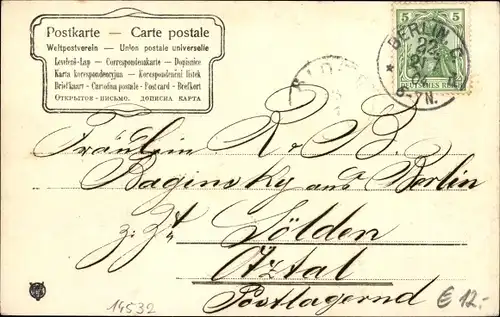 Postkarte — Carte postale
Weltpostverein — Union postale universelle
Levelező-Lap — Correspondenzkarte — Dopisnice
Karta korespondencyjna — Korespondenční lístek
Briefkaart — Cartolina postale — Post-card — Brefkort
ОТКРЫТОЕ ПИСЬМО. ДОПИСНА КАРТА
5 5
DEUTSCHES REICH
BERLIN C
6-7N.
Fräulein R & B.
Baginsky aus Berlin
z. Zt Sölden
Ötztal
Postlagernd
14532
€ 12.-